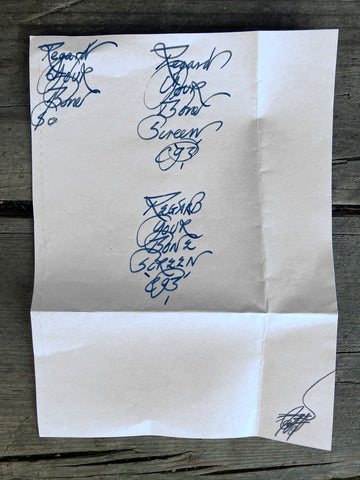 Regard
Your
Bone
Sc
Regard
Your
Bone
Screen
€93
REGARD
YOUR
BONE
SCREEN
€93